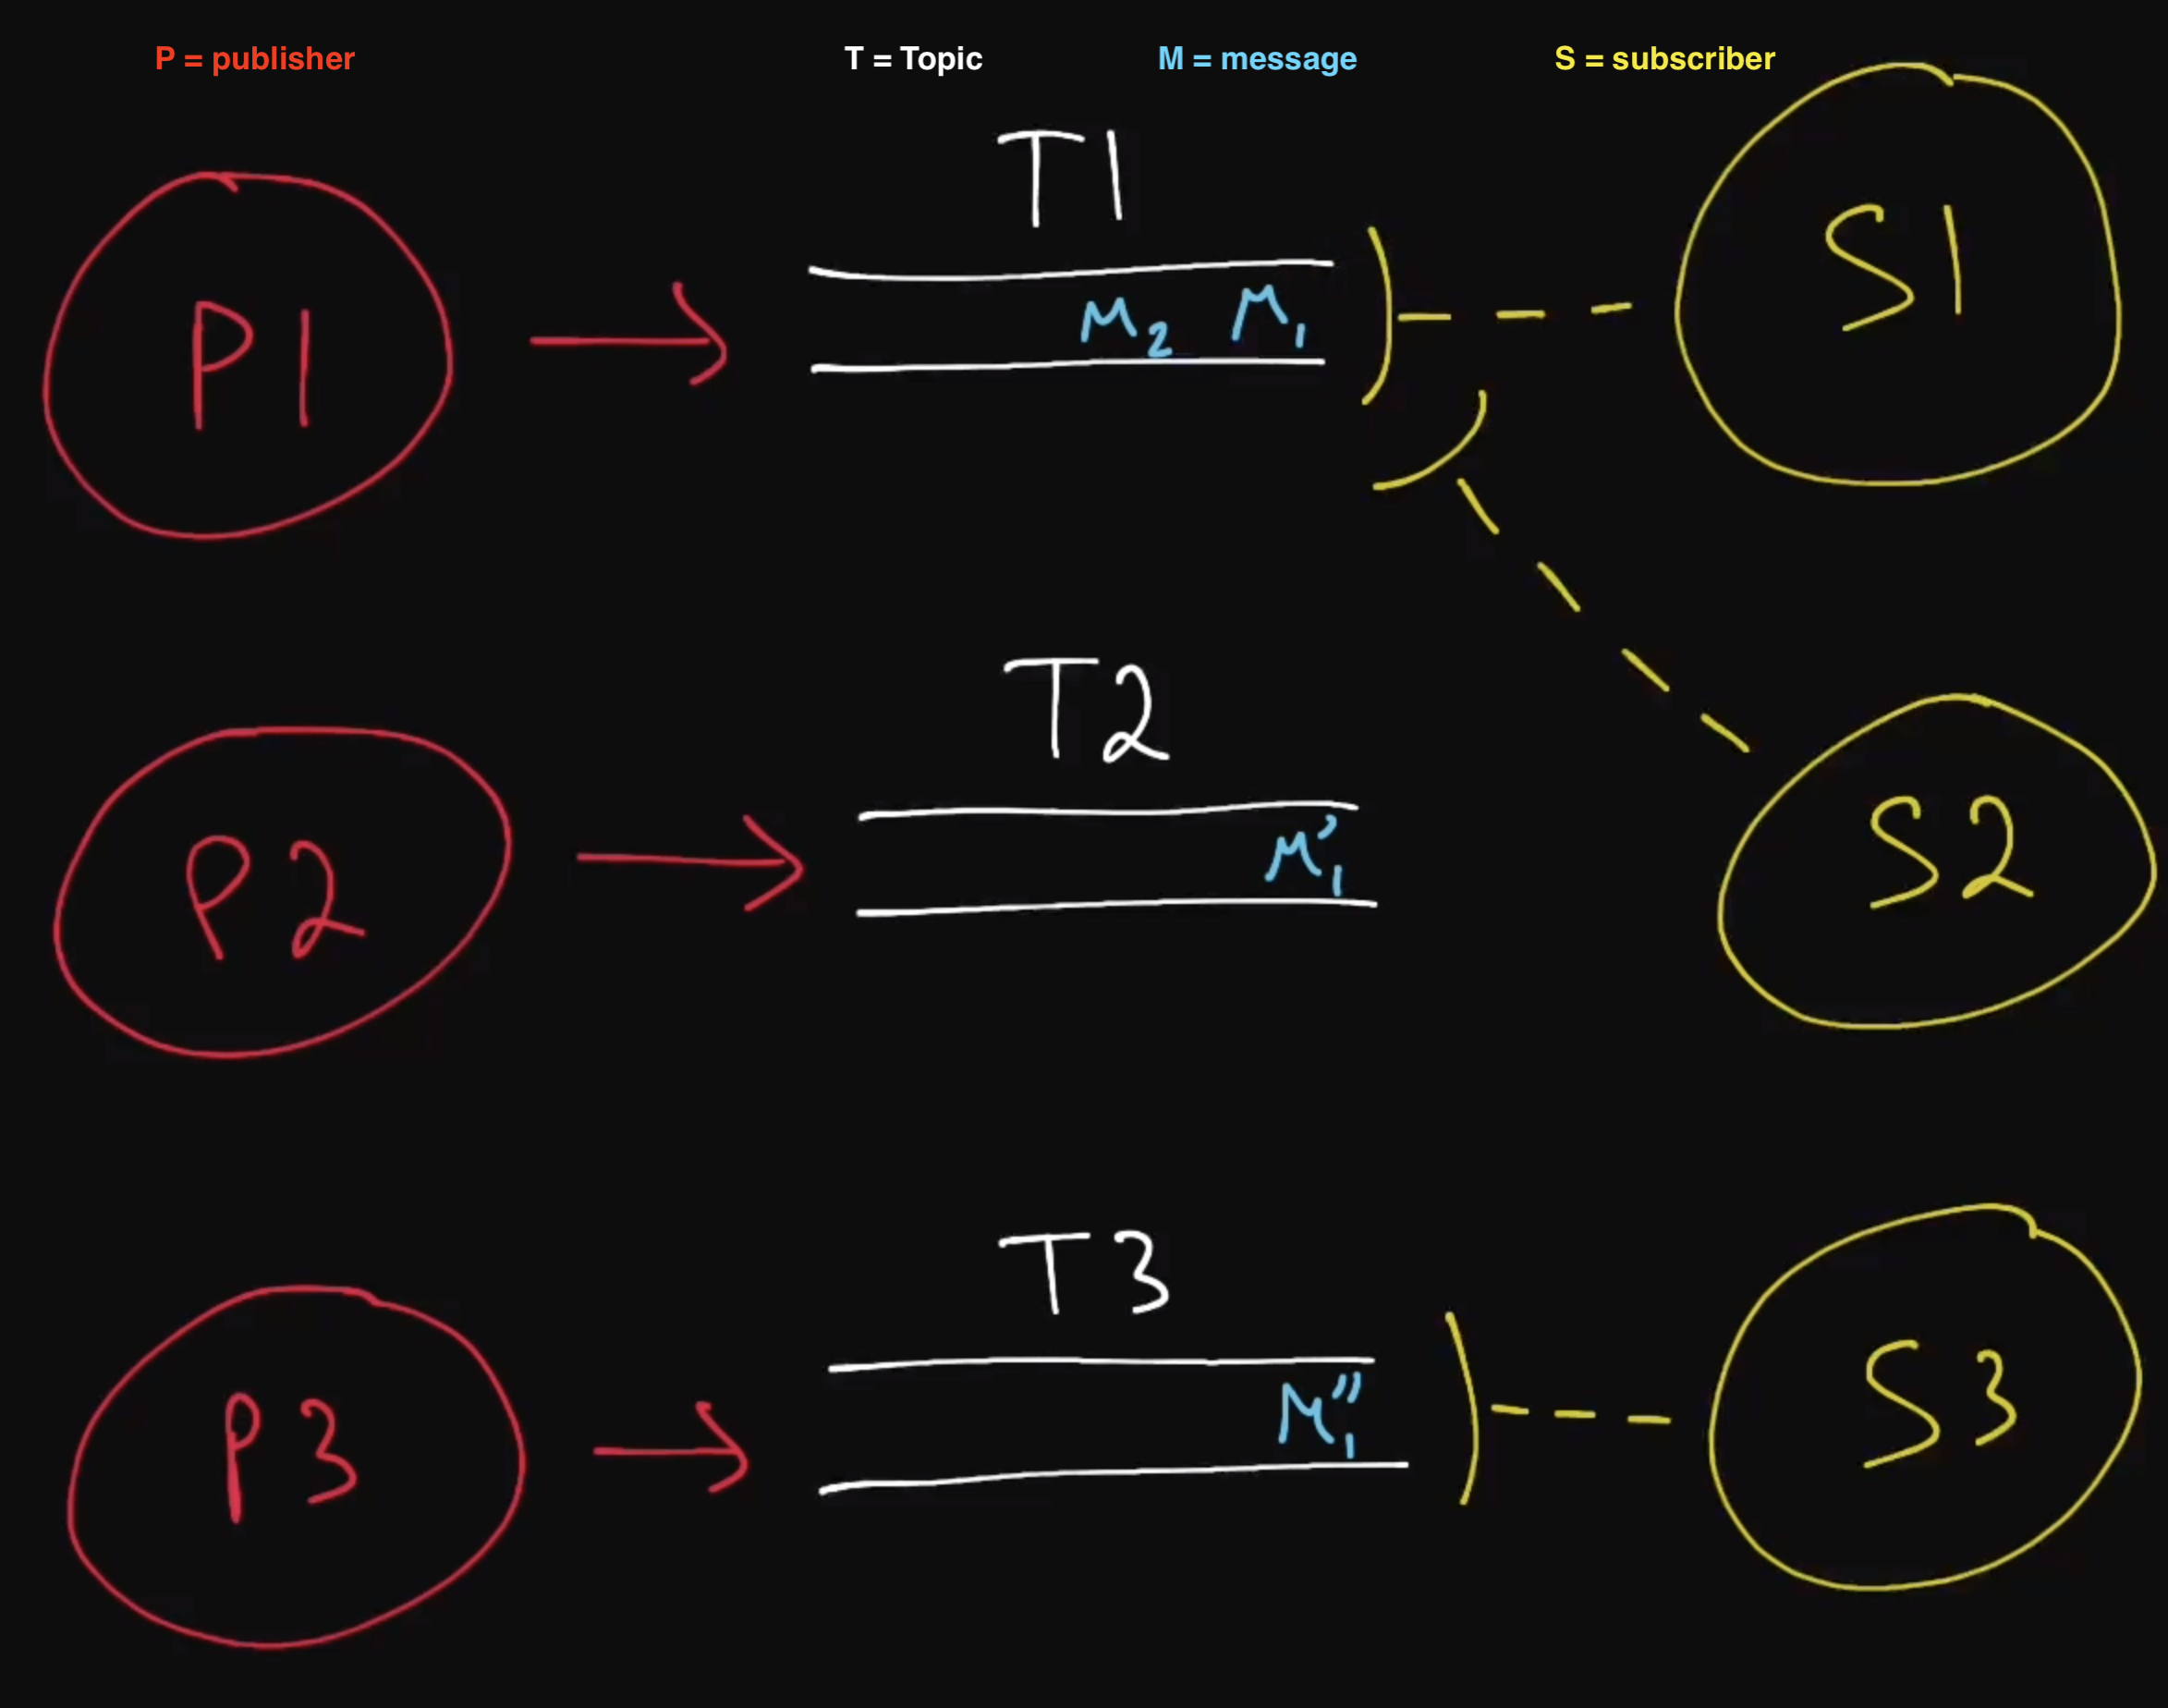 P = publisher T = Topic M = message S = subscriber
T1
P1 M₂ M₁ S1
T2
P2 M'₁ S2
T3
P3 M"₁ S3